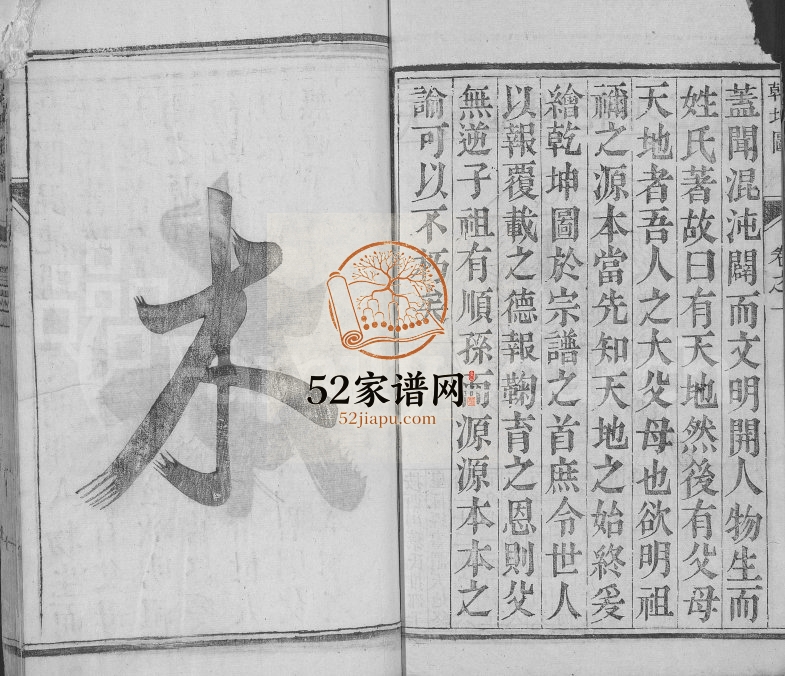 乾坤圖
卷之一
蓋聞混沌闢而文明開人物生而
姓氏著故曰有天地然後有父母
天地者吾人之大父母也欲明祖
禰之源本當先知天地之始終爰
繪乾坤圖於宗譜之首庶令世人
以報覆載之德報鞠育之恩則父
無逆子祖有順孫而源源本本之
諭可以不朽矣
木
52家谱网
52jiapu.com